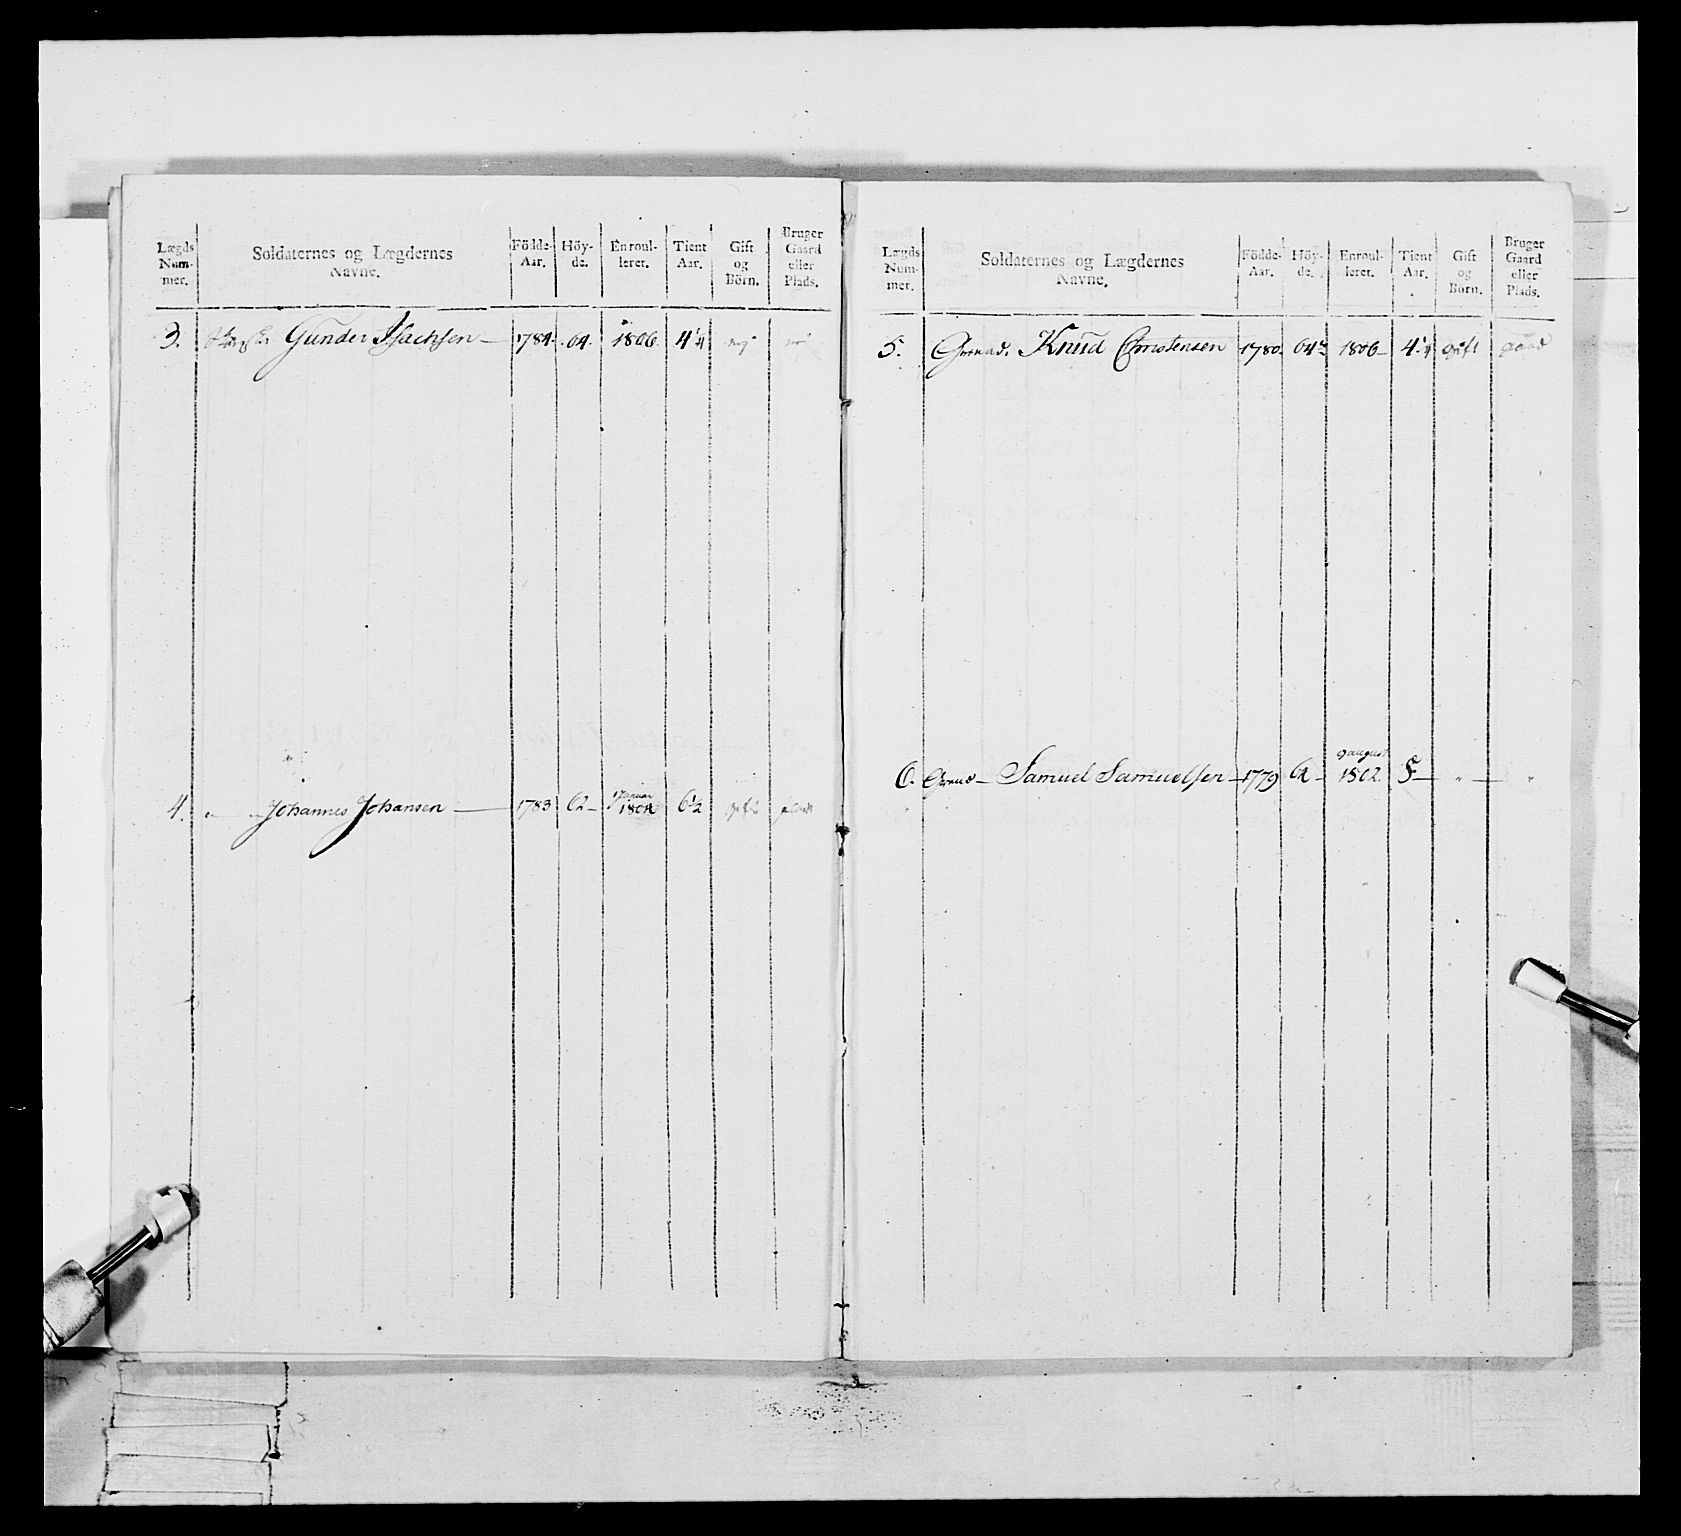 Lægds Num- mer. Soldaternes og Lægdernes Navne. Födde- Aar. Höy- de. Enroul- leret. Tient Aar. Gift og Börn. Bruger Gaard eller Plads.
3. Gunder Isachsen 1784. 64. 1806 4 1/4 nej
1 Januar
4. " " Johannes Johansen 1783 62 6 1/2 gift
Lægds Num- mer. Soldaternes og Lægdernes Navne. Födde- Aar. Höy- de. Enroul- leret. Tient Aar. Gift og Börn. Bruger Gaard eller Plads.
5. Grenad. Knud Christensen 1780. 64 1/2 1806 4 1/4 gift gaard
august
6. Grenad Samuel Samuelsen 1779 1802 8 " "